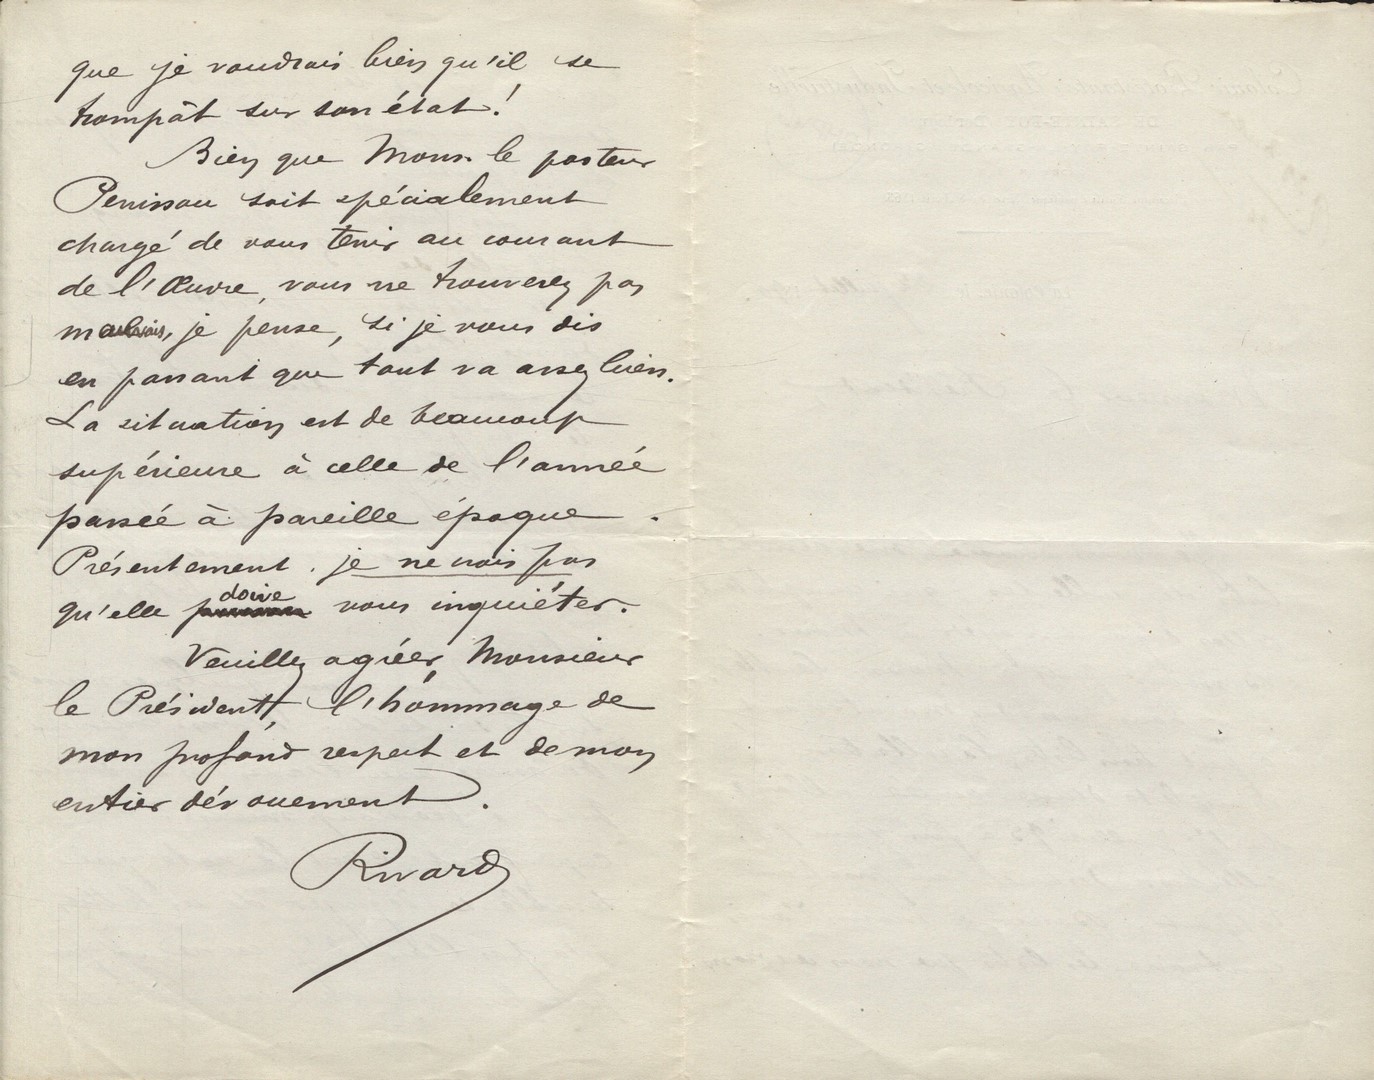 que je voudrais bien qu'il se
trompât sur son état !
Bien que Mons. le pasteur
Penissou soit spécialement
chargé de vous tenir au courant
de l'Œuvre, vous ne trouverez pas
mauvais, je pense, si je vous dis
en passant que tout va assez bien.
La situation est de beaucoup
supérieure à celle de l'année
passée à pareille époque.
Présentement. je ne vois pas
qu'elle doive vous inquiéter.
Veuillez agréer, Monsieur
le Président, l'hommage de
mon profond respect et de mon
entier dévouement.
Rivard